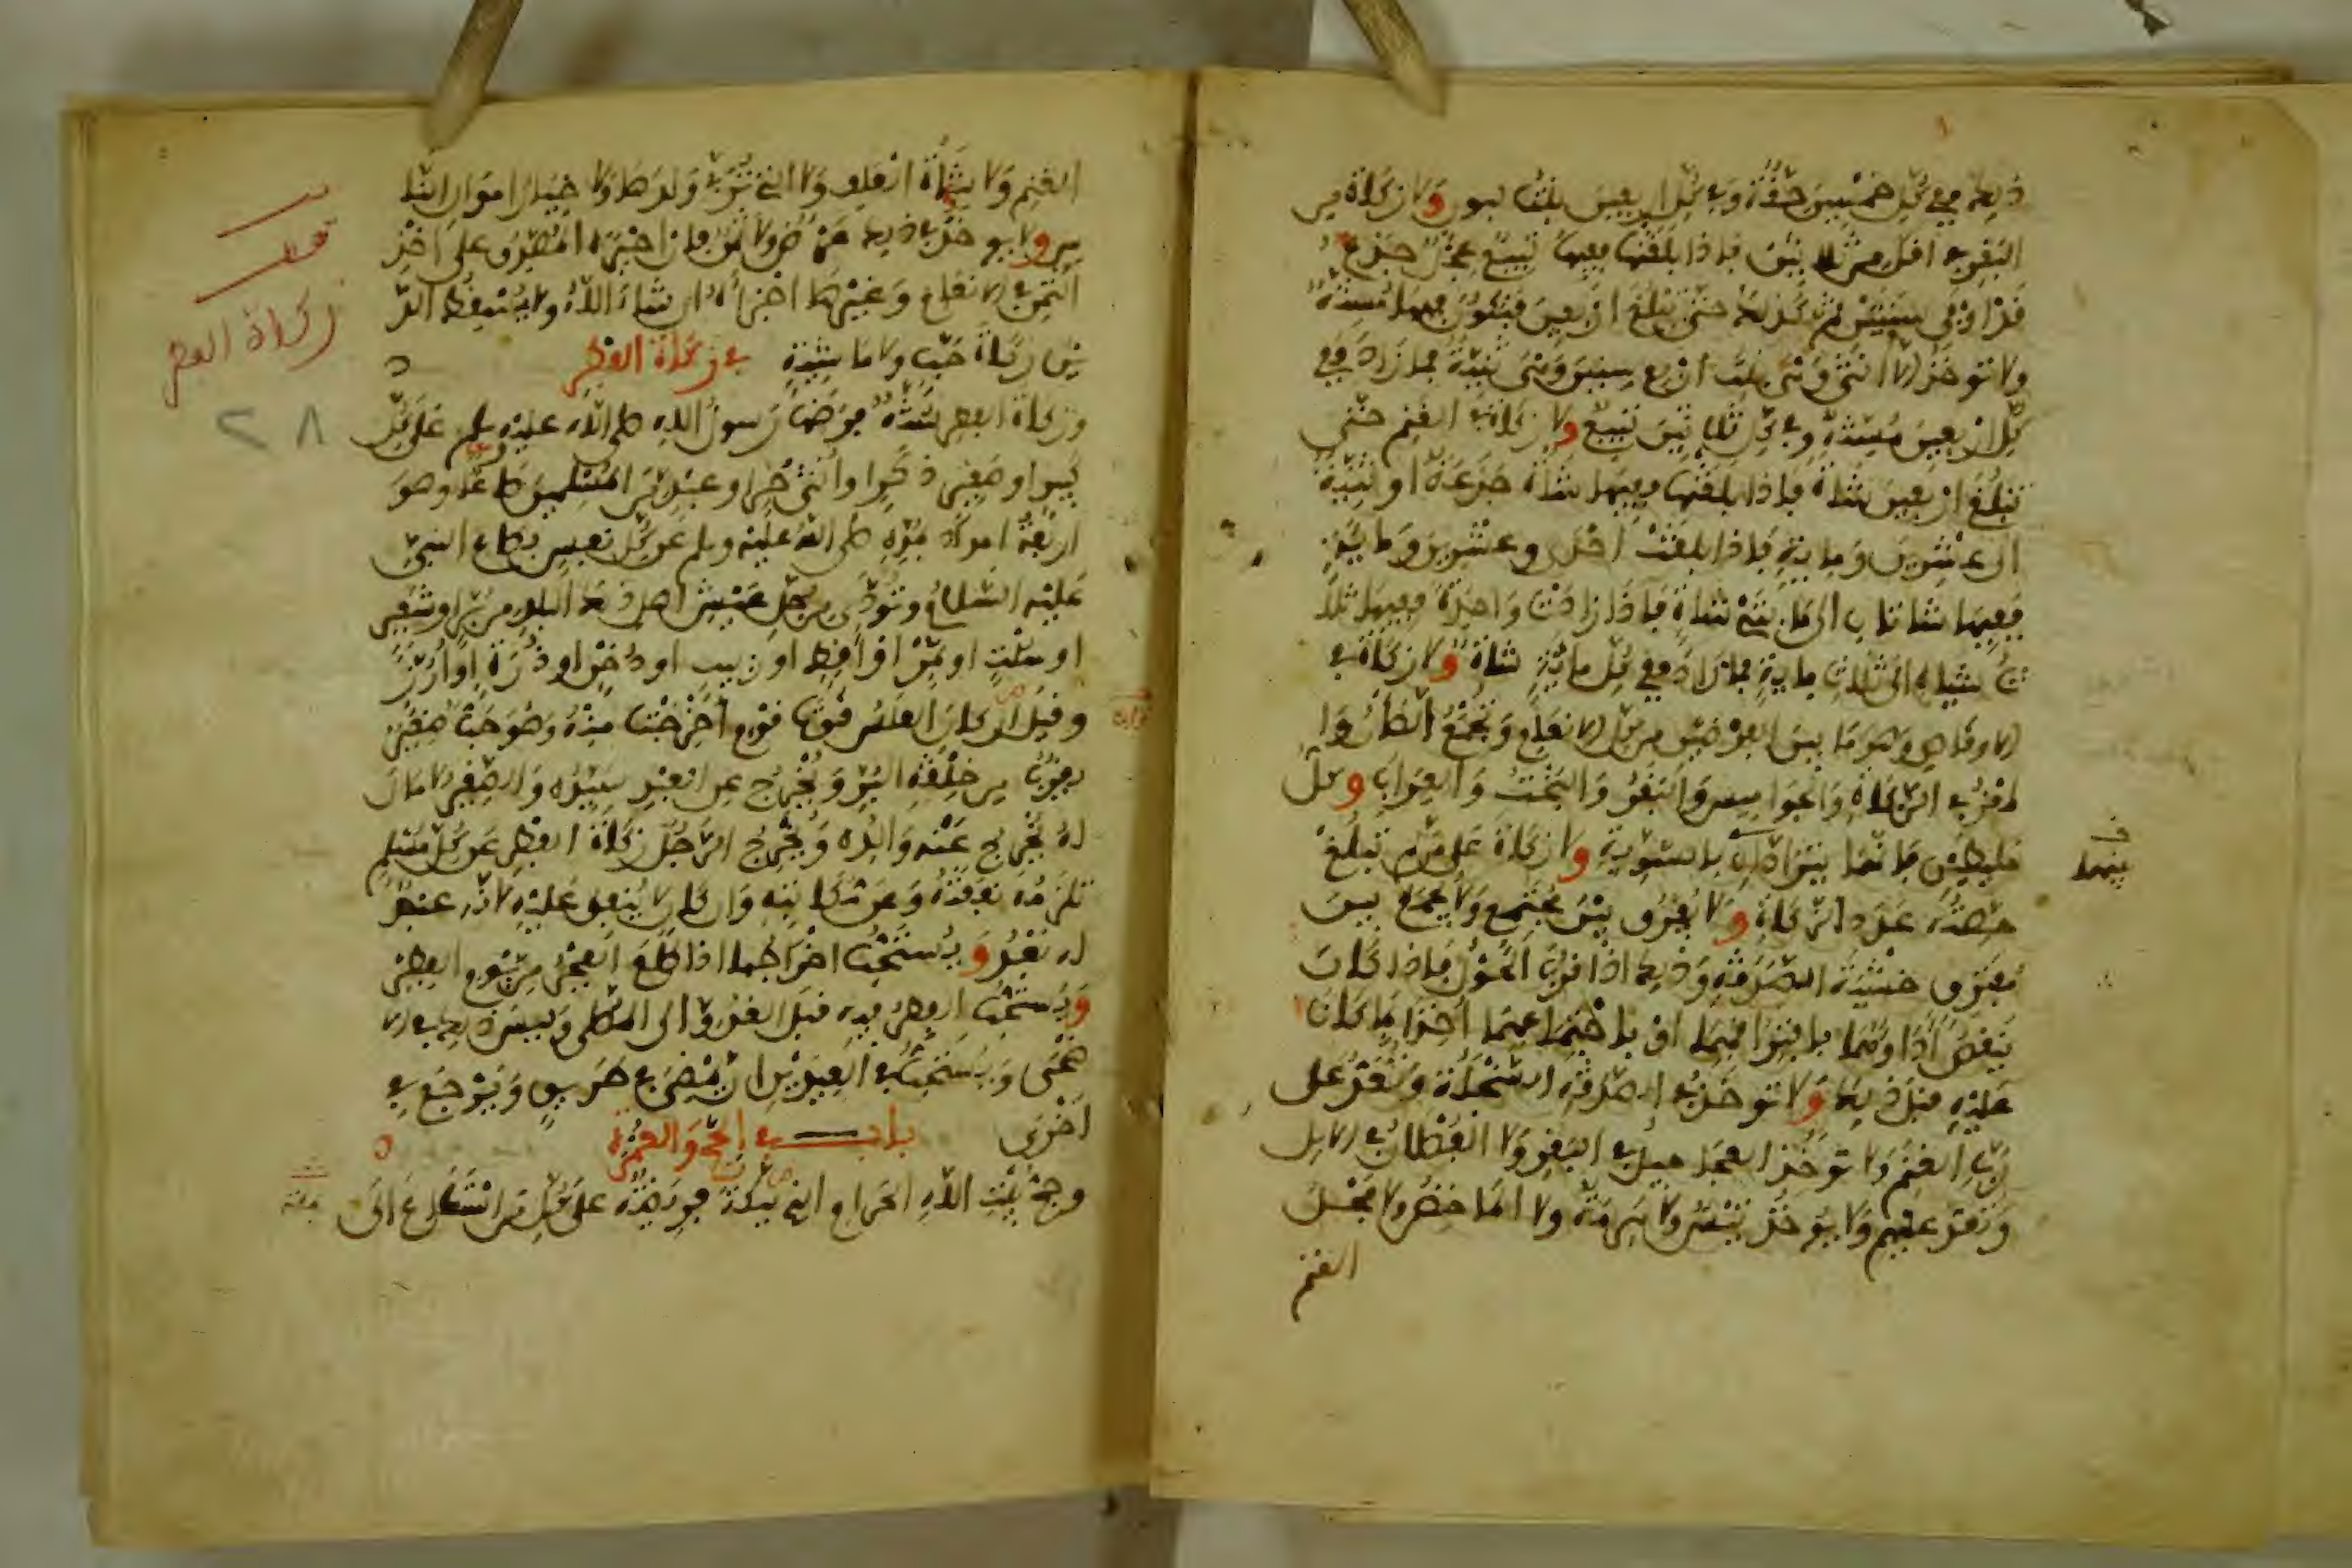 ذلك ففي كل خمسين حقة وفي كل اربعين بنت لبون ولا زكاة من
البقر في اقل من ثلاثين فاذا بلغتها ففيها تبيع عجل جذع
قد اوفى سنتين ثم كذلك حتى تبلغ اربعين فتكون فيها مسنة
ولا توخذ الا انثى وهي بنت اربع سنين وهي ثنية فما زاد ففي
كل اربعين مسنة وفي كل ثلاثين تبيع ولا زكاة في الغنم حتى
تبلغ اربعين شاة فاذا بلغتها ففيها شاة جذعة او ثنية
الى عشرين ومائة فاذا بلغت احدى وعشرين ومائة
ففيها شاتان الى مايتي شاة فاذا زادت واحدة ففيها ثلا
ث شياه الى ثلاث ماية فما زاد ففي كل مائة شاة ولا زكاة في
الاوقاص وهو ما بين الفرضين من كل الانعام وتجمع الضان وا
لمعز في الزكاة والجواميس والبقر والبخت والعراب وكل
خليطين فانهما يترادان بالسوية ولا زكاة على من لم تبلغ
حصته عدد الزكاة ولا يفرق بين مجتمع ولا يجمع بين
مفترق خشية الصدقة وذلك اذا قرب الحول فاذا كان
ينقص اداؤهما بافتراقهما او باجتماعهما اخذا بما كانا
عليه قبل ذلك ولا توخذ في الصدقة السخلة وتعد على
رب الغنم ولا توخذ العجاجيل في البقر ولا الفصلان في الابل
وتعد عليهم ولا يوخذ تيس ولا هرمة ولا الماخض ولا فحل
الغنم
بينهما
الغنم ولا شاة العلف ولا التي تربي ولدها ولا خيار اموال النا
س ولا يوخذ في ذلك عرض ولا ثمن فان اجبره المصدق على اخذ
الثمن في الانعام وغيرها اجزاه ان شاء الله ولا يسقط الد
ين زكاة حب ولا ماشية في زكاة الفطر
وزكاة الفطر سنة فرضها رسول الله صلى الله عليه وسلم على كل
كبير او صغير ذكر او انثى حر او عبد من المسلمين صاعا وهو
اربعة امداد بمده صلى الله عليه وسلم عن كل نفس بصاع النبي
عليه السلام وتودى من جل عيش اهل ذلك البلد من بر او شعير
او سلت او تمر او اقط او زبيب او دخن او ذرة او ارز
وقيل ان كان العلس قوت قوم اخرجت منه وهو حب صغير
يقرب من خلقة البر ويخرج عن العبد سيده والصغير لا مال
له يخرج عنه والده ويخرج الرجل زكاة الفطر عن كل مسلم
تلزمه نفقته وعن مكاتبه وان كان لا ينفق عليه لانه عبد
له بعد ويستحب اخراجها اذا طلع الفجر من يوم الفطر
ويستحب الفطر فيه قبل الغدو الى المصلى وليس ذلك في الا
ضحى ويستحب في العيدين ان يمضي في طريق ويرجع في
اخرى باب في الحج والعمرة
وحج بيت الله الحرام الذي ببكة فريضة على كل من استطاع الى
زكاة الفطر
٢٨